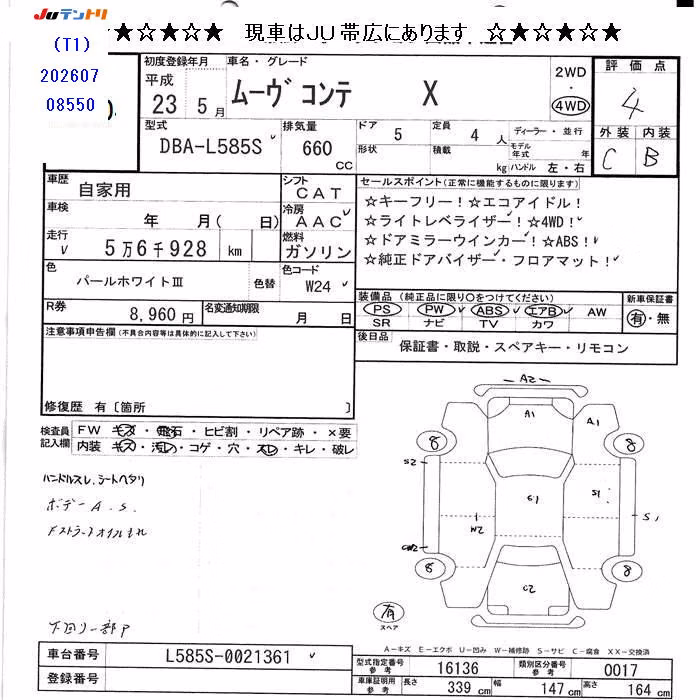 JUテントリ
★☆★☆★ 現車はJU帯広にあります ☆★☆★☆★
(T1)
202607
08550
初度登録年月 車名・グレード
平成 23 5月 ムーヴ コンテ X
2WD
・
4WD
評価点
4
外装 内装
C B
型式 排気量 ドア 定員 ディーラー・並行
DBA-L585S 660 CC 5 4人
形状 積載 kg モデル年式 年
ハンドル 左・右
車歴 自家用
シフト CAT
車検 年 月( 日)
冷房 AAC
走行 5万6千928 km
燃料 ガソリン
色 パールホワイトⅢ 色替
色コード W24
R券 8,960円 名変通知期限 月 日
セールスポイント(正常に機能するものに限ります)
☆キーフリー!☆エコアイドル!
☆ライトレベライザー!☆4WD!
☆ドアミラーウインカー!☆ABS!
☆純正ドアバイザー・フロアマット!
装備品(純正品に限り○をつけてください) 新車保証書
PS PW ABS エアB AW 有・無
SR ナビ TV カワ
後日品 保証書・取説・スペアキー・リモコン
注意事項申告欄(不具合内容等は具体的に記入して下さい)
修復歴 有〔箇所 〕
検査員記入欄
FW キズ・飛石・ヒビ割・リペア跡・×要
内装 キズ・汚レ・コゲ・穴・スレ・キレ・破レ
ハンドルスレ.シートヘタリ
ボデーA.S.
Fストラートオイルもれ
下回リ一部P
A2
A1
A.1
8
8
S2
S1
S1
S1
1
W2
W2
8
8
C2
有
スペア
A-キズ E-エクボ U-凹み W-補修跡 S-サビ C-腐食 XX-交換済
車台番号 L585S-0021361
登録番号
型式指定番号 参考 16136 類別区分番号 参考 0017
車庫証明用 参考 長さ 339cm 幅 147cm 高さ 164cm